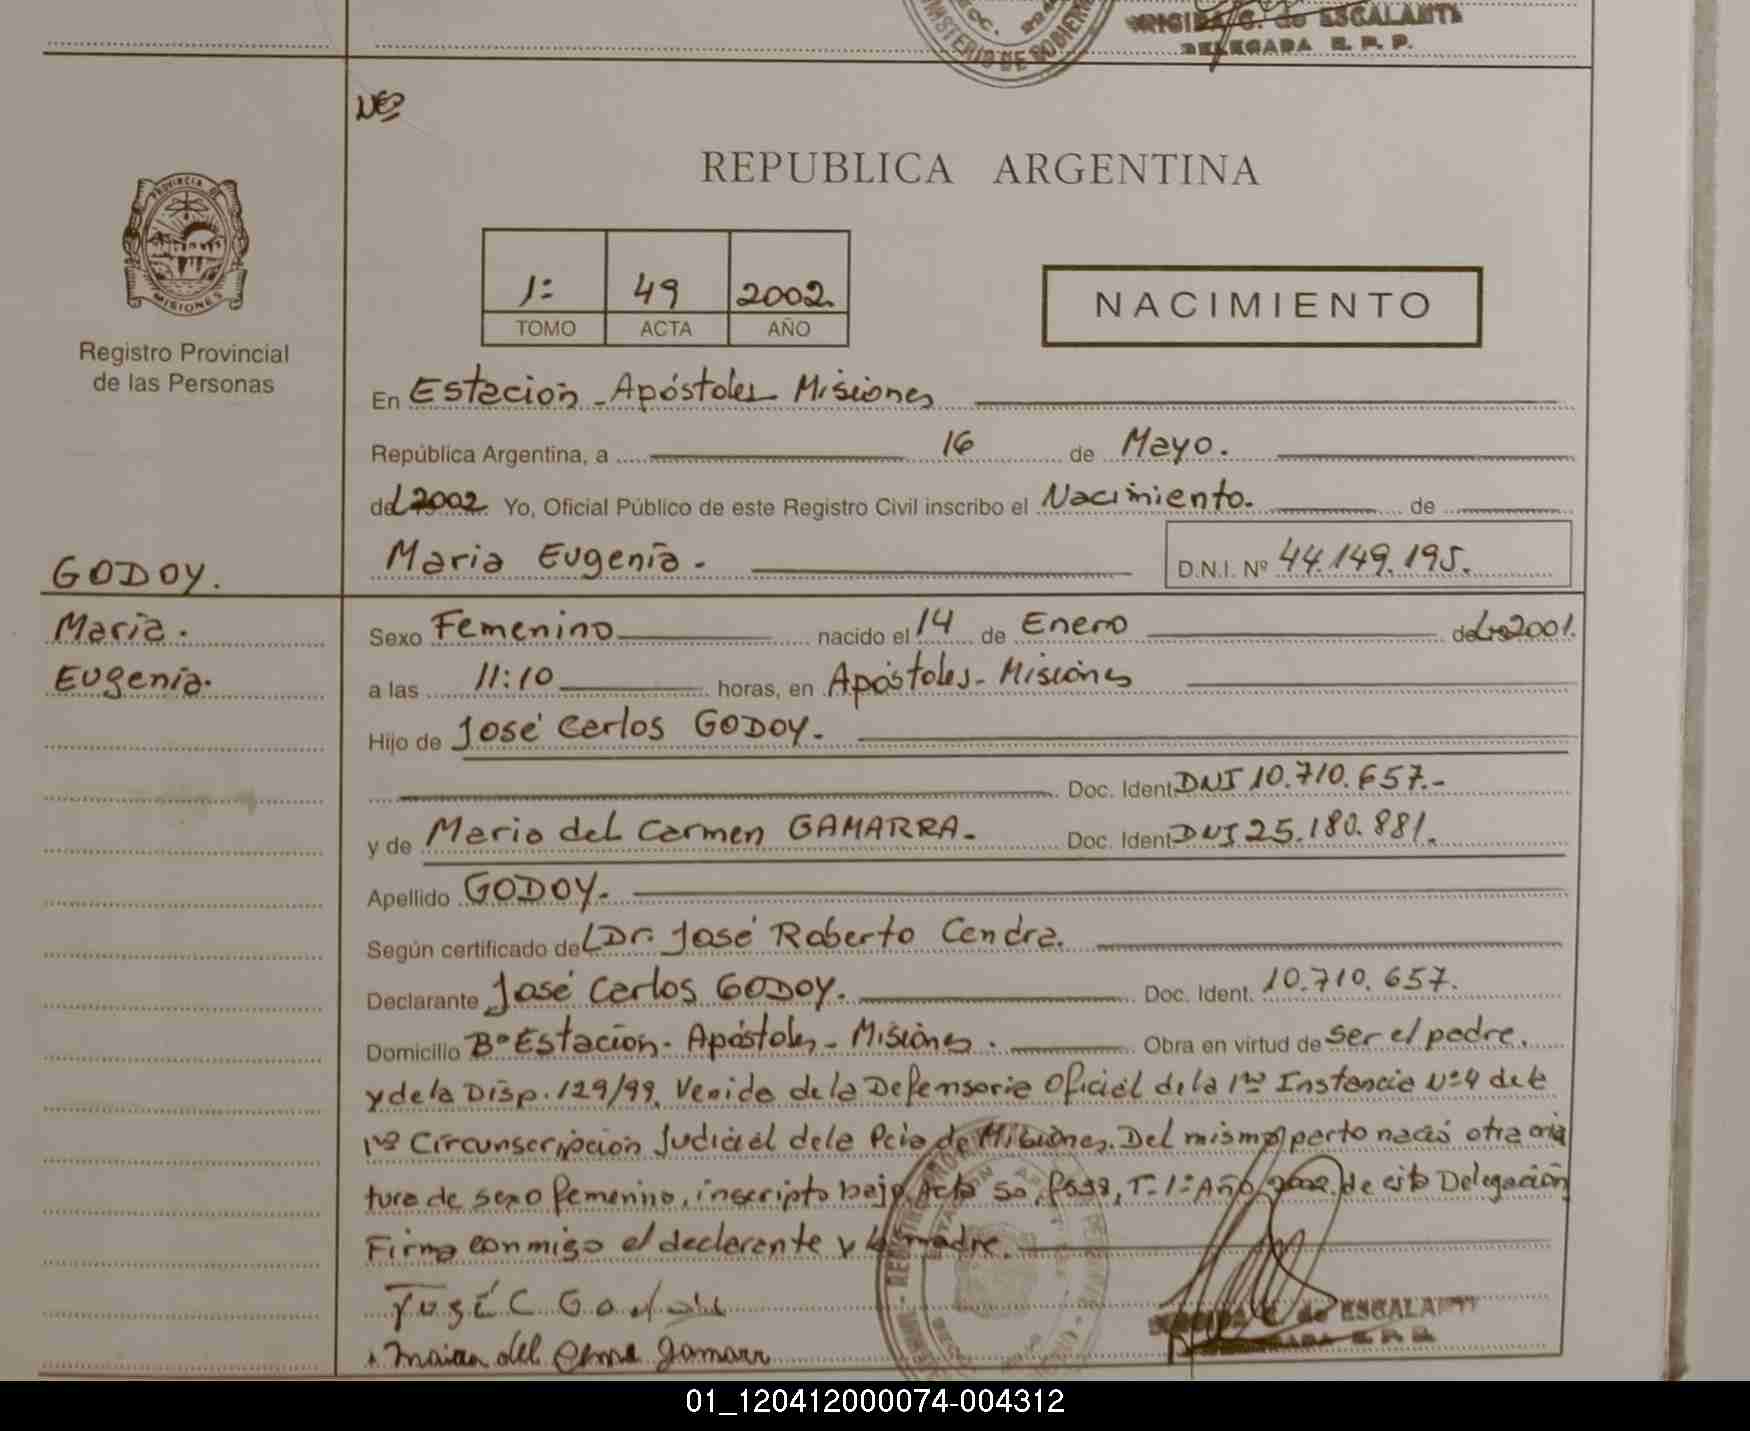 BRIGIDA G. de ESCALANTE
DELEGADA R. P. P.
MINISTERIO DE GOBIERNO
Nº
REPUBLICA ARGENTINA
PROVINCIA DE
MISIONES
Registro Provincial
de las Personas
1: 49 2002.
TOMO ACTA AÑO
NACIMIENTO
En Estación - Apóstoles Misiones
República Argentina, a 16 de Mayo.
del 2002 Yo, Oficial Público de este Registro Civil inscribo el Nacimiento. de
Maria Eugenia. D.N.I. Nº 44.149.195.
GODOY.
Maria.
Eugenia.
Sexo Femenino nacido el 14 de Enero del 2001.
a las 11:10 horas, en Apóstoles - Misiones
Hijo de José Carlos GODOY.
Doc. Ident DNI 10.710.657.-
y de Maria del Carmen GAMARRA. Doc. Ident DNI 25.180.881.
Apellido GODOY.
Según certificado del Dr. José Roberto Cendra.
Declarante José Carlos GODOY. Doc. Ident. 10.710.657.
Domicilio Bº Estación - Apóstoles - Misiones. Obra en virtud de ser el padre.
y de la Disp. 129/99. Venida de la Defensoria Oficial de la 1ra Instancia Nº 4 de la
1ra Circunscripción Judicial de la Pcia de Misiones. Del mismo parto nació otra cria
tura de sexo femenino, inscripto bajo Acta 50, Tº 1: Año 2002. de esta Delegación
Firma conmigo el declarante y la madre.
José C Godoy
Maria del Gamarr
BRIGIDA G. de ESCALANTE
DELEGADA R. P. P.
01_120412000074-004312